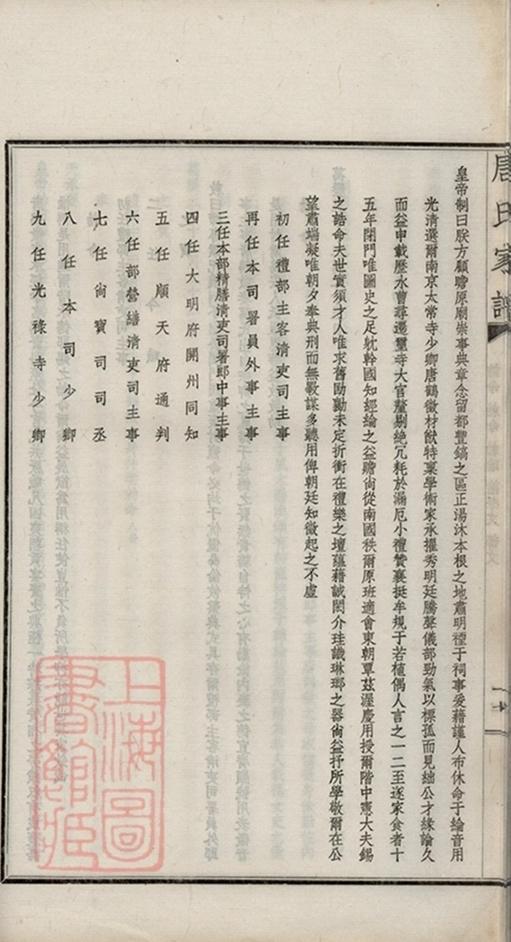 唐氏家譜
皇帝制曰朕方顧瞻原廟崇事典章念留都豐鎬之區正湯沐本根之地肅明禋于祠事爰藉謹人布休命于綸音用
光清選爾南京太常寺少卿唐鶴徵材猷特稟學術家承擢秀明廷騰聲儀部勁氣以標孤而見絀公才緣論久
而益申載歷水曹尋遷璽寺大官釐剔絕冗耗於漏卮小禮贊襄挺牟規于若植偶人言之一二至遂家食者十
五年閉門唯圖史之足躭幹國知經綸之益贍尙從南國秩爾原班適會東朝覃茲渥慶用授爾階中憲大夫錫
之誥命夫世實須才人唯求舊勖勷未定折衝在禮樂之壇蘊藉誠閎介珪識琳瑯之器尙益抒所學敬爾在公
望肅端凝唯朝夕奉典刑而無斁謀多聽用俾朝廷知徵起之不虛
初任禮部主客淸吏司主事
再任本司署員外事主事
三任本部精膳淸吏司署郎中事主事
四任大明府開州同知
五任順天府通判
六任部營繕淸吏司主事
七任尙寶司司丞
八任本司少卿
九任光祿寺少卿
上海圖
書館藏